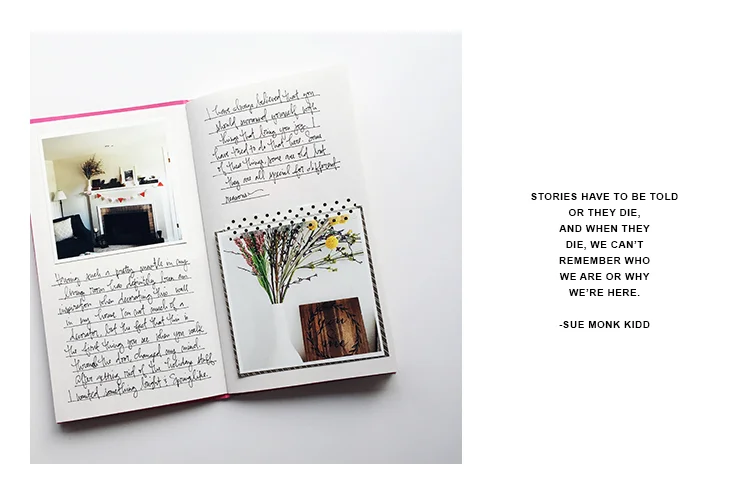 Having such a pretty mantle in my
living room has definitely been an
inspiration when decorating this wall
in my home. I'm not much of a
decorator, but the fact that this is
the first thing you see when you walk
through the door, changed my mind.
After getting rid of the holiday stuff
I wanted something bright & Springlike.
I have always believed that you
should surround yourself with
things that bring you joy. I
have tried to do that here. Some
of these things some are old, but
they are all special for different
reasons
STORIES HAVE TO BE TOLD
OR THEY DIE,
AND WHEN THEY
DIE, WE CAN'T
REMEMBER WHO
WE ARE OR WHY
WE'RE HERE.
-SUE MONK KIDD